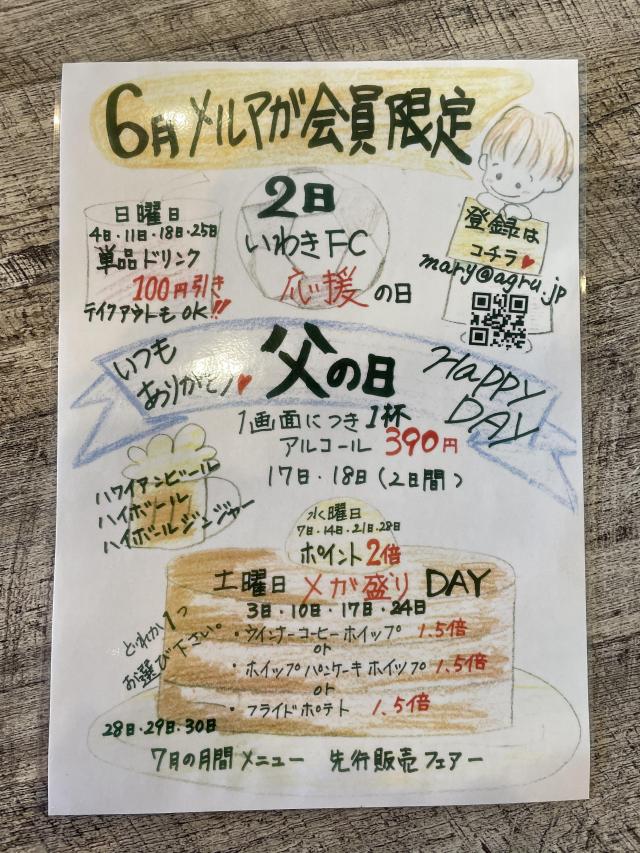 6月メルマガ会員限定
日曜日
4日・11日・18日・25日
単品ドリンク
100円引き
テイクアウトもOK!!
2日
いわきFC
応援の日
登録は
コチラ♥
mary@agru.jp
いつも
ありがとう♥
父の日
Happy
DAY
1画面につき1杯
アルコール390円
17日・18日(2日間)
ハワイアンビール
ハイボール
ハイボールジンジャー
水曜日
7日・14日・21日・28日
ポイント2倍
土曜日 メガ盛り DAY
3日・10日・17日・24日
どれか1つ
お選び下さい。
・ウインナーコーヒーホイップ 1.5倍
or
・ホイップパンケーキホイップ 1.5倍
or
・フライドポテト 1.5倍
28日・29日・30日
7月の月間メニュー 先行販売フェアー